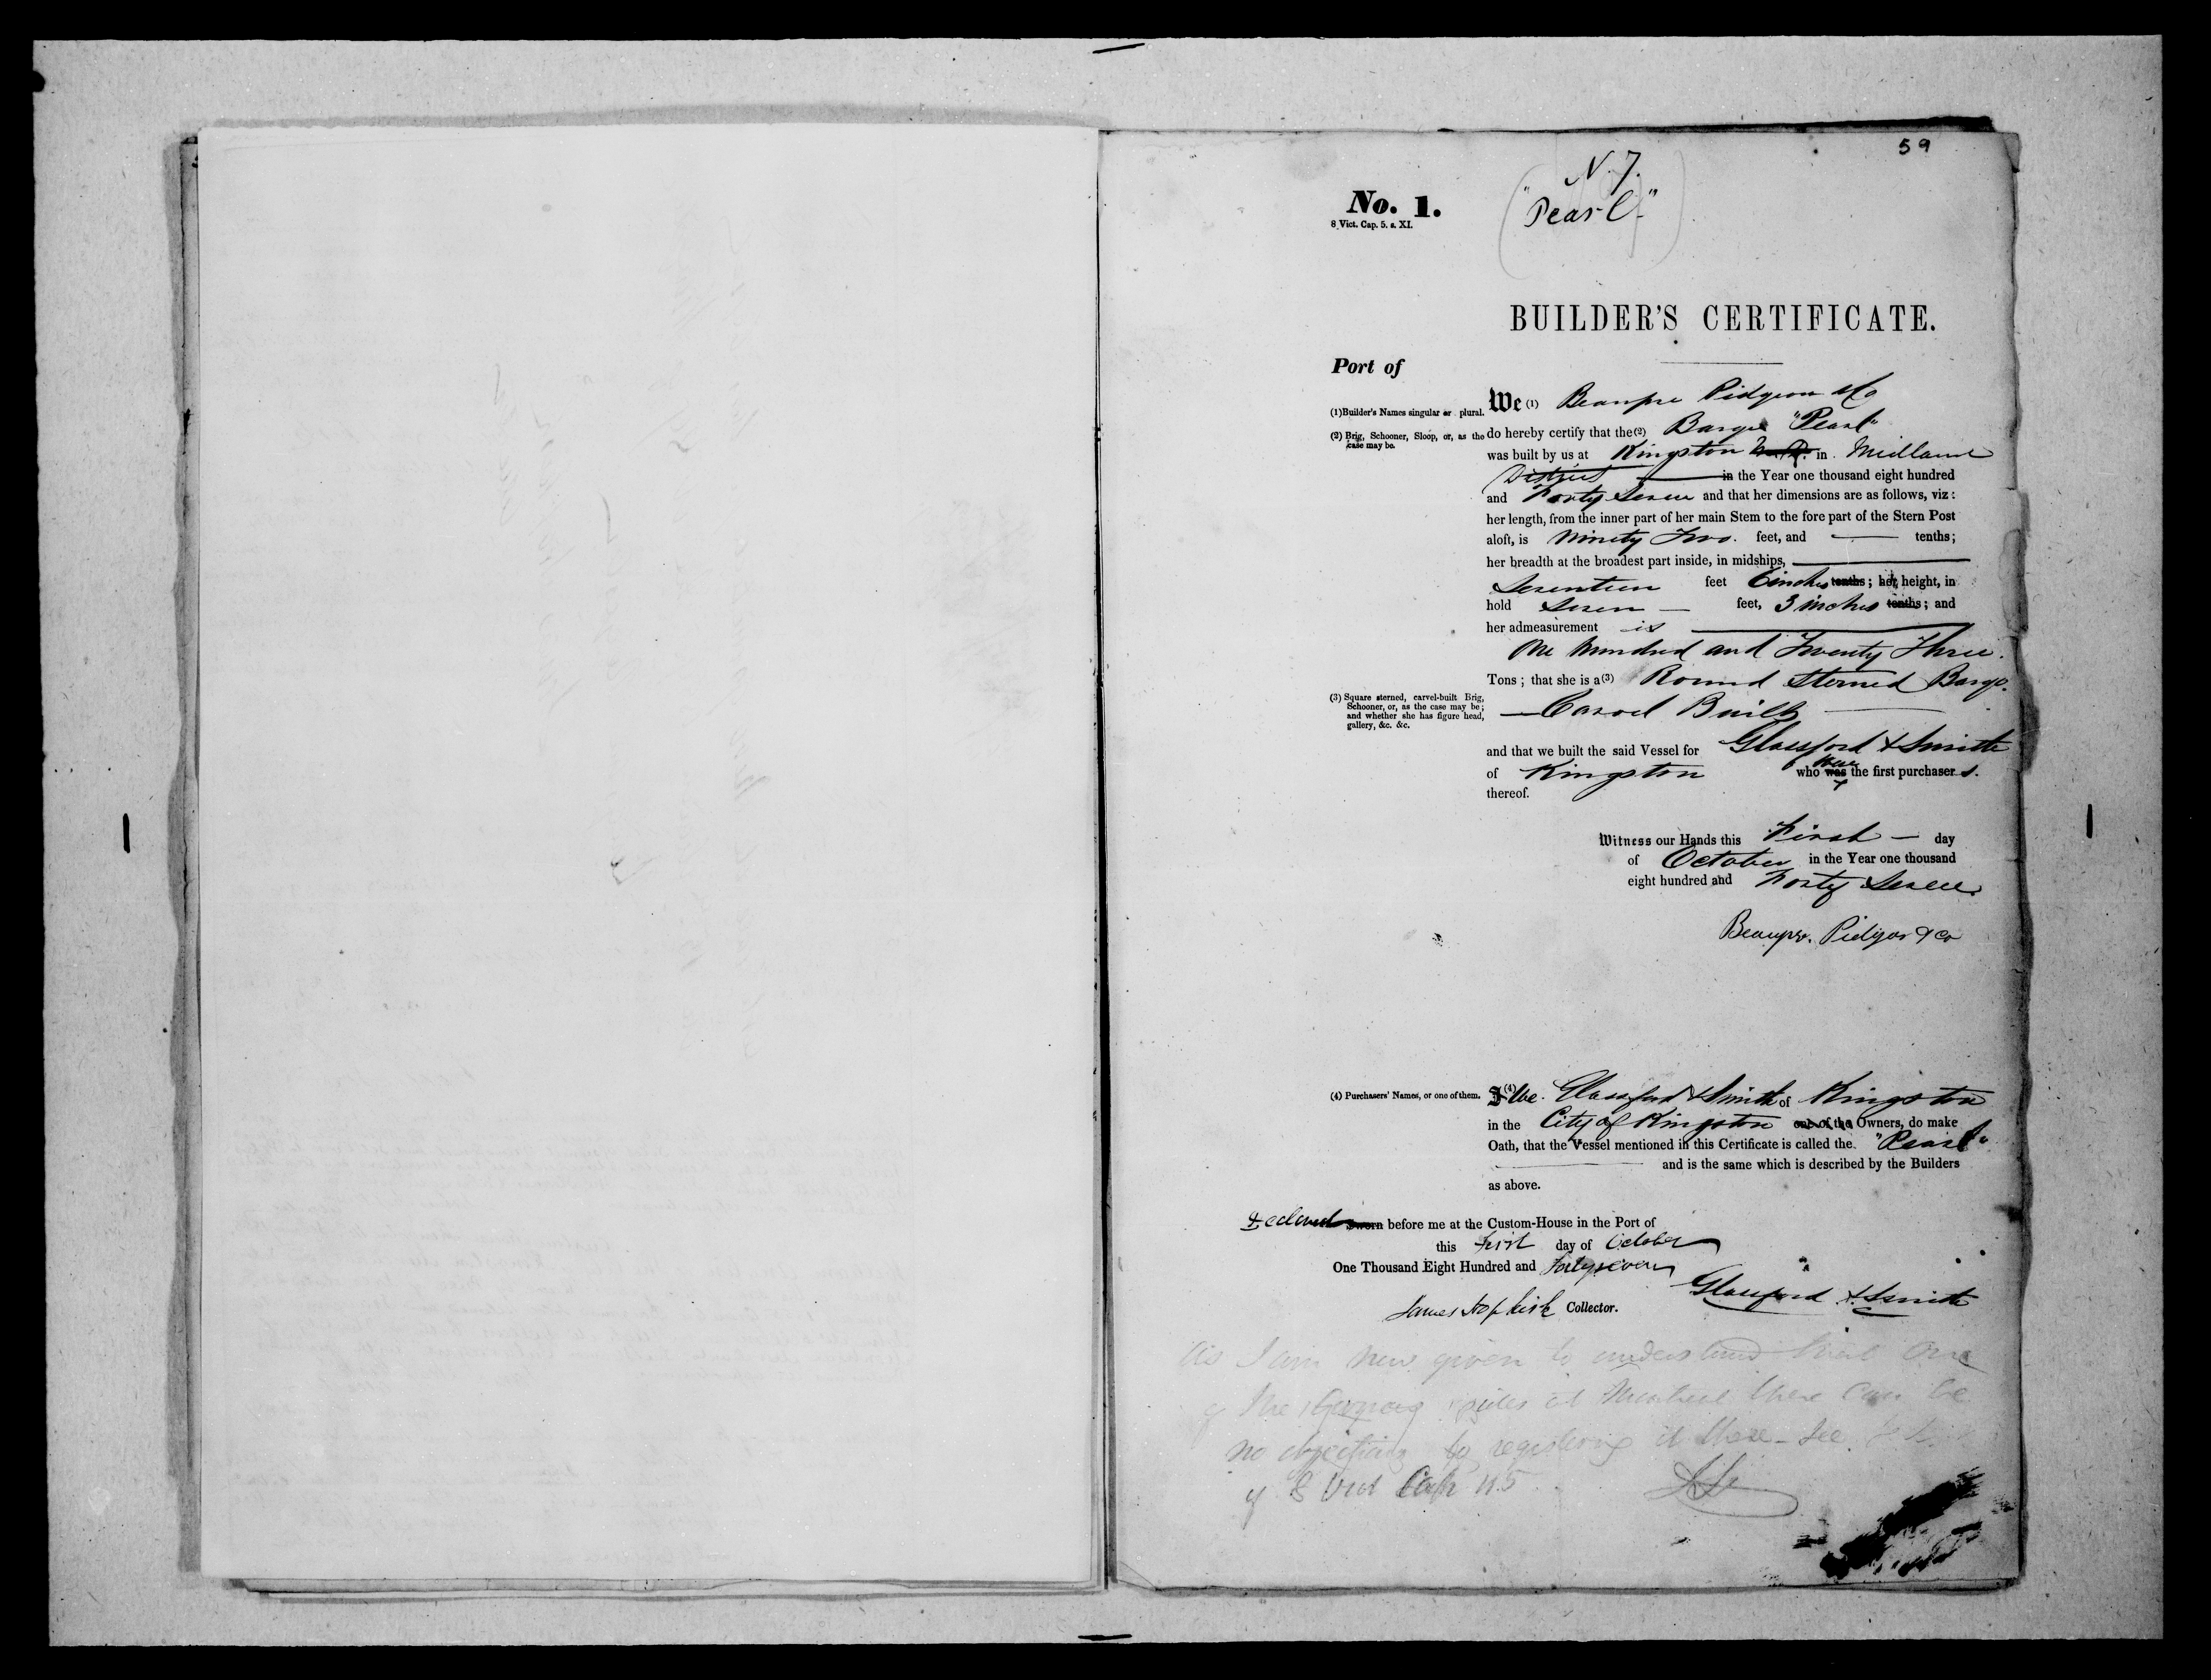 59
N. 7.
"Pearl"
No. 1.
8 Vict. Cap. 5. s. XI.
BUILDER'S CERTIFICATE.
Port of
(1) Builder's Names singular or plural.
We (1) Beaupre Pidgeon & Co
(2) Brig, Schooner, Sloop, or, as the case may be.
do hereby certify that the (2) Barge "Pearl"
was built by us at Kingston in Midland
District in the Year one thousand eight hundred
and Forty Seven and that her dimensions are as follows, viz:
her length, from the inner part of her main Stem to the fore part of the Stern Post
aloft, is Ninety Two feet, and — tenths;
her breadth at the broadest part inside, in midships,
Seventeen feet 6 inches tenths; her height, in
hold Seven — feet, 3 inches tenths; and
her admeasurement is
One hundred and Twenty Three.
Tons; that she is a (3) Round Sterned Barge.
(3) Square sterned, carvel-built Brig,
Schooner, or, as the case may be;
and whether she has figure head,
gallery, &c. &c.
— Carvel Built
and that we built the said Vessel for Glassford & Smith
of Kingston who was were the first purchasers.
thereof.
Witness our Hands this First — day
of October in the Year one thousand
eight hundred and Forty Seven.
Beaupre. Pidgeon & Co
(4) Purchasers' Names, or one of them.
I (4) We. Glassford & Smith of Kingston
in the City of Kingston one of the Owners, do make
Oath, that the Vessel mentioned in this Certificate is called the "Pearl"
and is the same which is described by the Builders
as above.
Declared Sworn before me at the Custom-House in the Port of
this First day of October
One Thousand Eight Hundred and Forty seven
Glassford & Smith
James Hopkirk Collector.
As I am now given to understand that one
of the resides at Montreal there can be
no objection to registering it there - See
of 8 Vict Cap 5